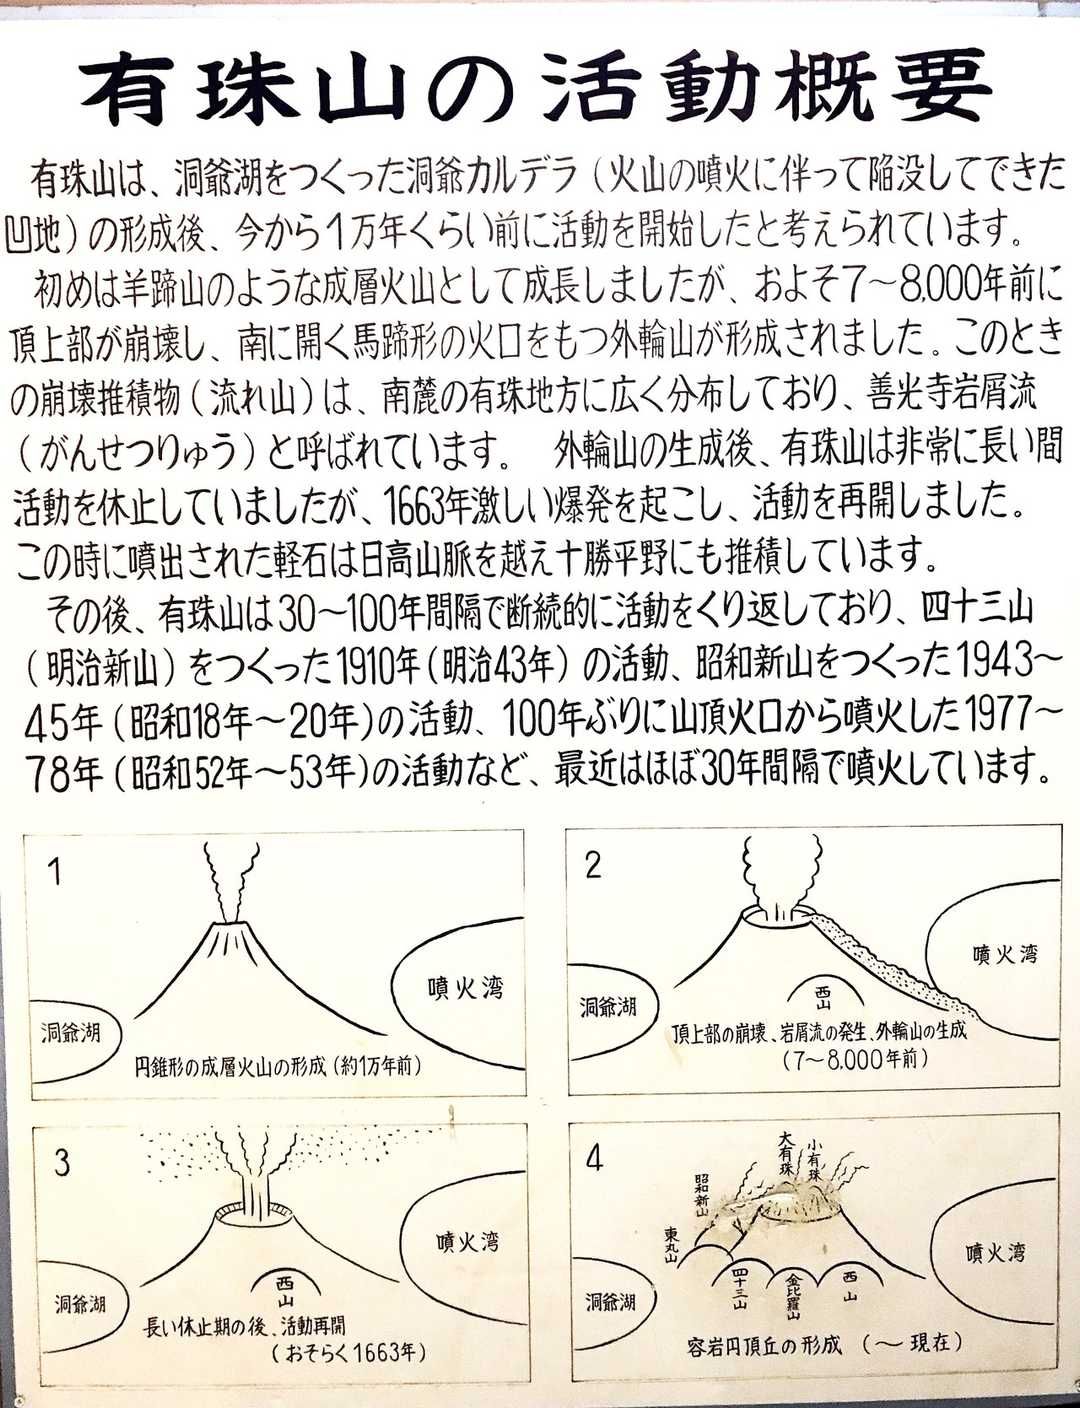 有珠山の活動概要
有珠山は、洞爺湖をつくった洞爺カルデラ（火山の噴火に伴って陥没してできた
凹地）の形成後、今から1万年くらい前に活動を開始したと考えられています。
初めは羊蹄山のような成層火山として成長しましたが、およそ7〜8,000年前に
頂上部が崩壊し、南に開く馬蹄形の火口をもつ外輪山が形成されました。このとき
の崩壊推積物（流れ山）は、南麓の有珠地方に広く分布しており、善光寺岩屑流
（がんせつりゅう）と呼ばれています。 外輪山の生成後、有珠山は非常に長い間
活動を休止していましたが、1663年激しい爆発を起こし、活動を再開しました。
この時に噴出された軽石は日高山脈を越え十勝平野にも推積しています。
その後、有珠山は30〜100年間隔で断続的に活動をくり返しており、四十三山
（明治新山）をつくった1910年（明治43年）の活動、昭和新山をつくった1943〜
45年（昭和18年〜20年）の活動、100年ぶりに山頂火口から噴火した1977〜
78年（昭和52年〜53年）の活動など、最近はほぼ30年間隔で噴火しています。
1
噴火湾
洞爺湖
円錐形の成層火山の形成（約1万年前）
2
噴火湾
洞爺湖
西山
頂上部の崩壊、岩屑流の発生、外輪山の生成
（7〜8,000年前）
3
噴火湾
洞爺湖
西山
長い休止期の後、活動再開
（おそらく1663年）
4
大有珠
小有珠
昭和新山
東丸山
噴火湾
洞爺湖
四十三山
金比羅山
西山
容岩円頂丘の形成（〜現在）